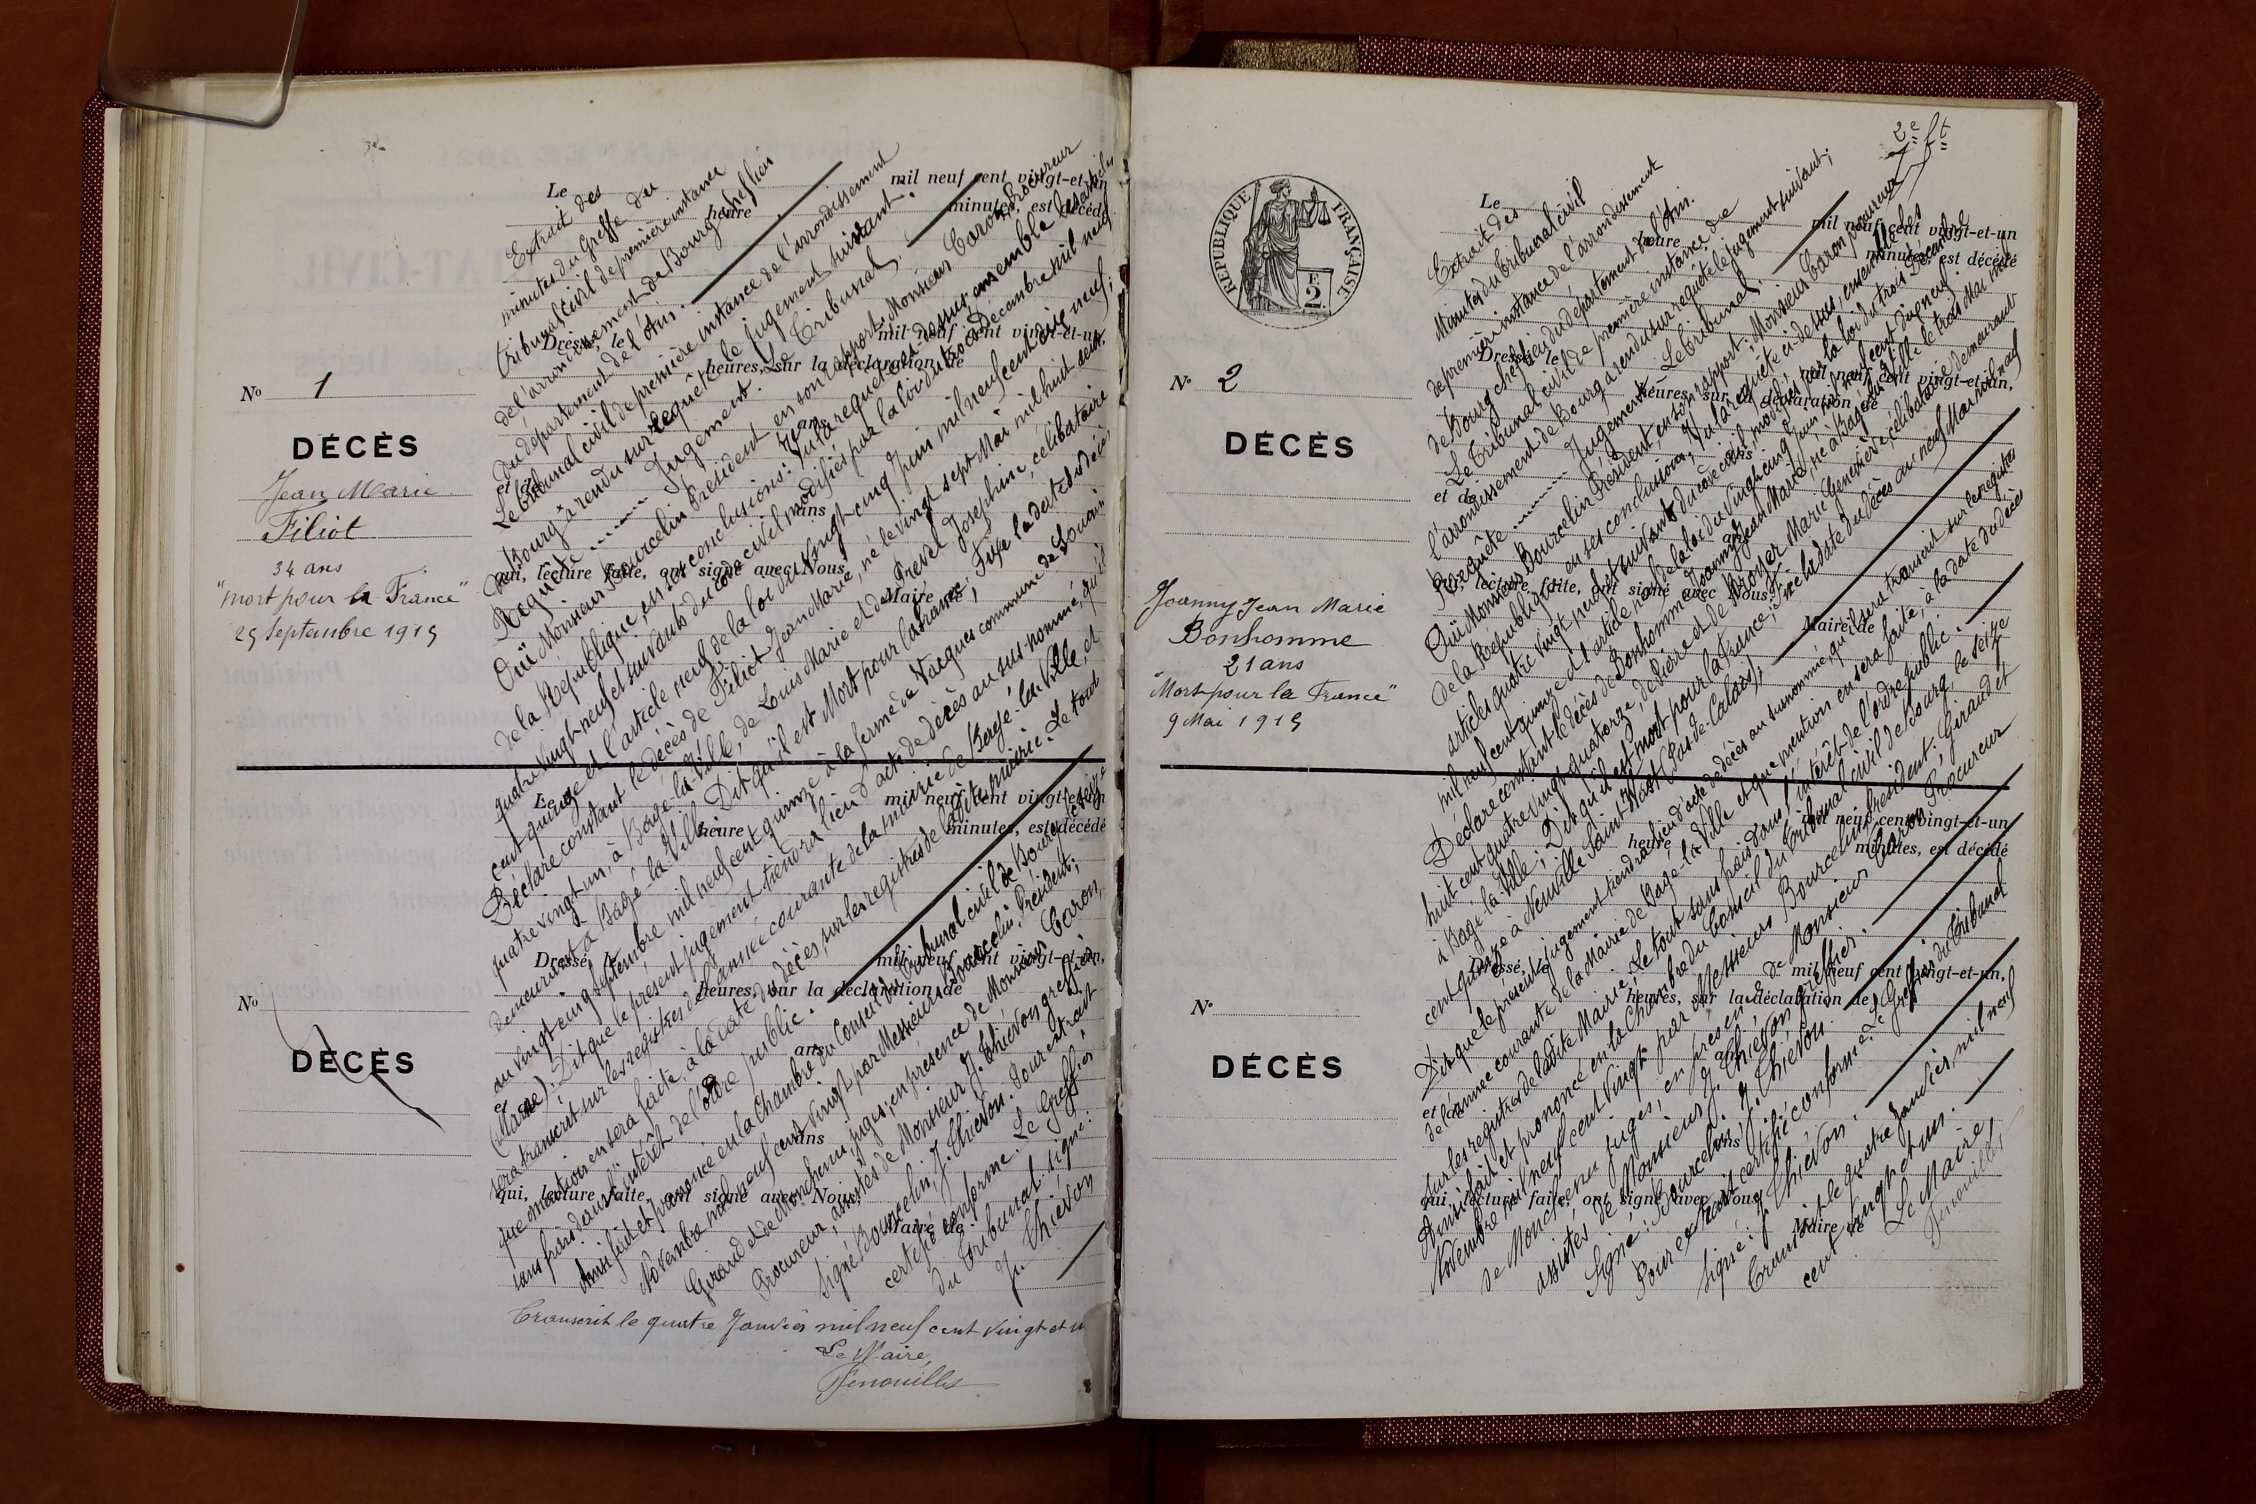 Le mil neuf cent vingt-et-un
heure minutes, est décédé
Dressé, le mil neuf cent vingt-et-un,
heures, sur la déclaration de
ans
et de
ans
qui, lecture faite, ont signé avec Nous,
Maire de
No 1
DÉCÈS
Jean Marie
Filiot
34 ans
"mort pour la France"
25 Septembre 1915
Extrait des
minutes du Greffe du
tribunal civil de première instance
de l'arrondissement de Bourg chef lieu
du département de l'Ain.
Le tribunal civil de première instance de l'arrondissement
de Bourg a rendu sur requête le jugement suivant.
Requête Jugement. Le Tribunal.
Ouï Monsieur Bourcelin Président en son rapport, Monsieur Caron Procureur
de la République, en ses conclusions; Vu la requête ci-dessus, ensemble les articles
quatre vingt-neuf et suivants du code civil modifiés par la loi du trois Décembre mil neuf
cent quinze et l'article neuf de la loi du vingt-cinq Juin mil neuf cent dix neuf;
Déclare constant le décès de Filiot Jean Marie, né le vingt sept Mai mil huit cent
quatre vingt-un, à Bâgé-la-Ville, de Louis Marie et de Prevel Josephine, celibataire
demeurant à Bagé-la-Ville. Dit qu'il est Mort pour la France; Fixe la date du décès
au vingt cinq Septembre mil neuf cent quinze à la ferme de Vacques commune de Souain
(Marne). Dit que le présent jugement tiendra lieu d'acte de décès au sus-nommé, qu'il
sera transcrit sur les registres de l'année courante de la mairie de Bagé-la-Ville, et
que mention en sera faite à la date du décès, sur les registres de ladite mairie. Le tout
sans frais dans l'intérêt de l'ordre public.
Ainsi fait et prononcé en la Chambre du Conseil du Tribunal civil de Bourg, le seize
Novembre mil neuf cent vingt par Messieurs Bourcelin, Président;
Giraud et de Monchenu, juges, en présence de Monsieur Caron,
Procureur, assistés de Monsieur J. Thiévon greffier
Signé: Bourcelin, J. Thiévon. Pour extrait
certifié conforme. Le Greffier
du Tribunal signé:
J. Thiévon
Le mil neuf cent vingt-et-un
heure minutes, est décédé
Dressé, le mil neuf cent vingt-et-un,
heures, sur la déclaration de
ans
et de
ans
qui, lecture faite, ont signé avec Nous,
Maire de
No
DÉCÈS
Transcrit le quatre Janvier mil neuf cent vingt et un
Le Maire,
2e ft
RÉPUBLIQUE FRANÇAISE
E
2
Le mil neuf cent vingt-et-un
heure minutes, est décédé
Dressé, le mil neuf cent vingt-et-un,
heures, sur la déclaration de
ans
et de
ans
qui, lecture faite, ont signé avec Nous,
Maire de
No 2
DÉCÈS
Joanny Jean Marie
Bonhomme
21 ans
"Mort pour la France"
9 Mai 1915
Extrait des
Minutes du Tribunal civil
de première instance de l'arrondissement
de Bourg chef lieu du département de l'Ain.
Le Tribunal civil de première instance de
l'arrondissement de Bourg a rendu sur requête le jugement suivant;
Requête Jugement Le Tribunal
Ouï Monsieur Bourcelin Président, en son rapport; Monsieur Caron procureur
de la République en ses conclusions; Vu la requête ci-dessus, ensemble les
articles quatre vingt neuf et suivants du code civil, modifiés par la loi du trois Décembre
mil neuf cent quinze et l'article neuf de la loi du vingt cinq Juin mil neuf cent dix neuf;
Déclare constant le décès de Bonhomme Joanny Jean Marie, né à Bagé la Ville le trois Mai mil
huit cent quatre vingt quatorze, de Pierre et de Broyer Marie Genevière, célibataire, demeurant
à Bagé la Ville; Dit qu'il est mort pour la France; Fixe la date du décès au neuf Mai mil neuf
cent quinze à Neuville Saint Vast (Pas-de-Calais);
Dit que le présent jugement tiendra lieu d'acte de décès au susnommé, qu'il sera transcrit sur les registres
de l'année courante de la Mairie de Bagé-la Ville et que mention en sera faite, à la date du décès
sur les registres de ladite Mairie. Le tout sans frais dans l'intérêt de l'ordre public.
Ainsi fait et prononcé en la Chambre du Conseil du Tribunal civil de Bourg, le seize
Novembre mil neuf cent vingt par Messieurs Bourcelin, Président; Giraud et
de Monchenu juges, en présence de Monsieur Caron Procureur
assistés de Monsieur J. Thiévon greffier.
Signé: Bourcelin, J. Thiévon.
Pour extrait certifié conforme. Le Greffier du Tribunal
Signé: J. Thiévon.
Transcrit le quatre Janvier mil neuf
cent vingt et un.
Le Maire,
Le mil neuf cent vingt-et-un
heure minutes, est décédé
Dressé, le mil neuf cent vingt-et-un,
heures, sur la déclaration de
ans
et de
ans
qui, lecture faite, ont signé avec Nous,
Maire de
No
DÉCÈS